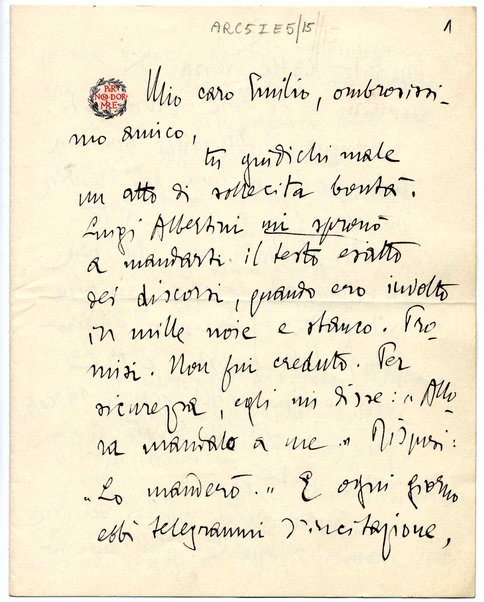 ARC5IE5/15
1
PER
NON DOR
MIRE
Mio caro Emilio, ombrosissi-
mo amico,
tu giudichi male
un atto di sollecita bontà.
Luigi Albertini mi spronò
a mandarti il testo esatto
dei discorsi, quando ero involto
in mille noie e stanco. Pro-
misi. Non fui creduto. Per
sicurezza, egli mi disse: "Allo-
ra mandalo a me." Risposi:
"Lo manderò." E ogni giorno
ebbi telegrammi d'incitazione,